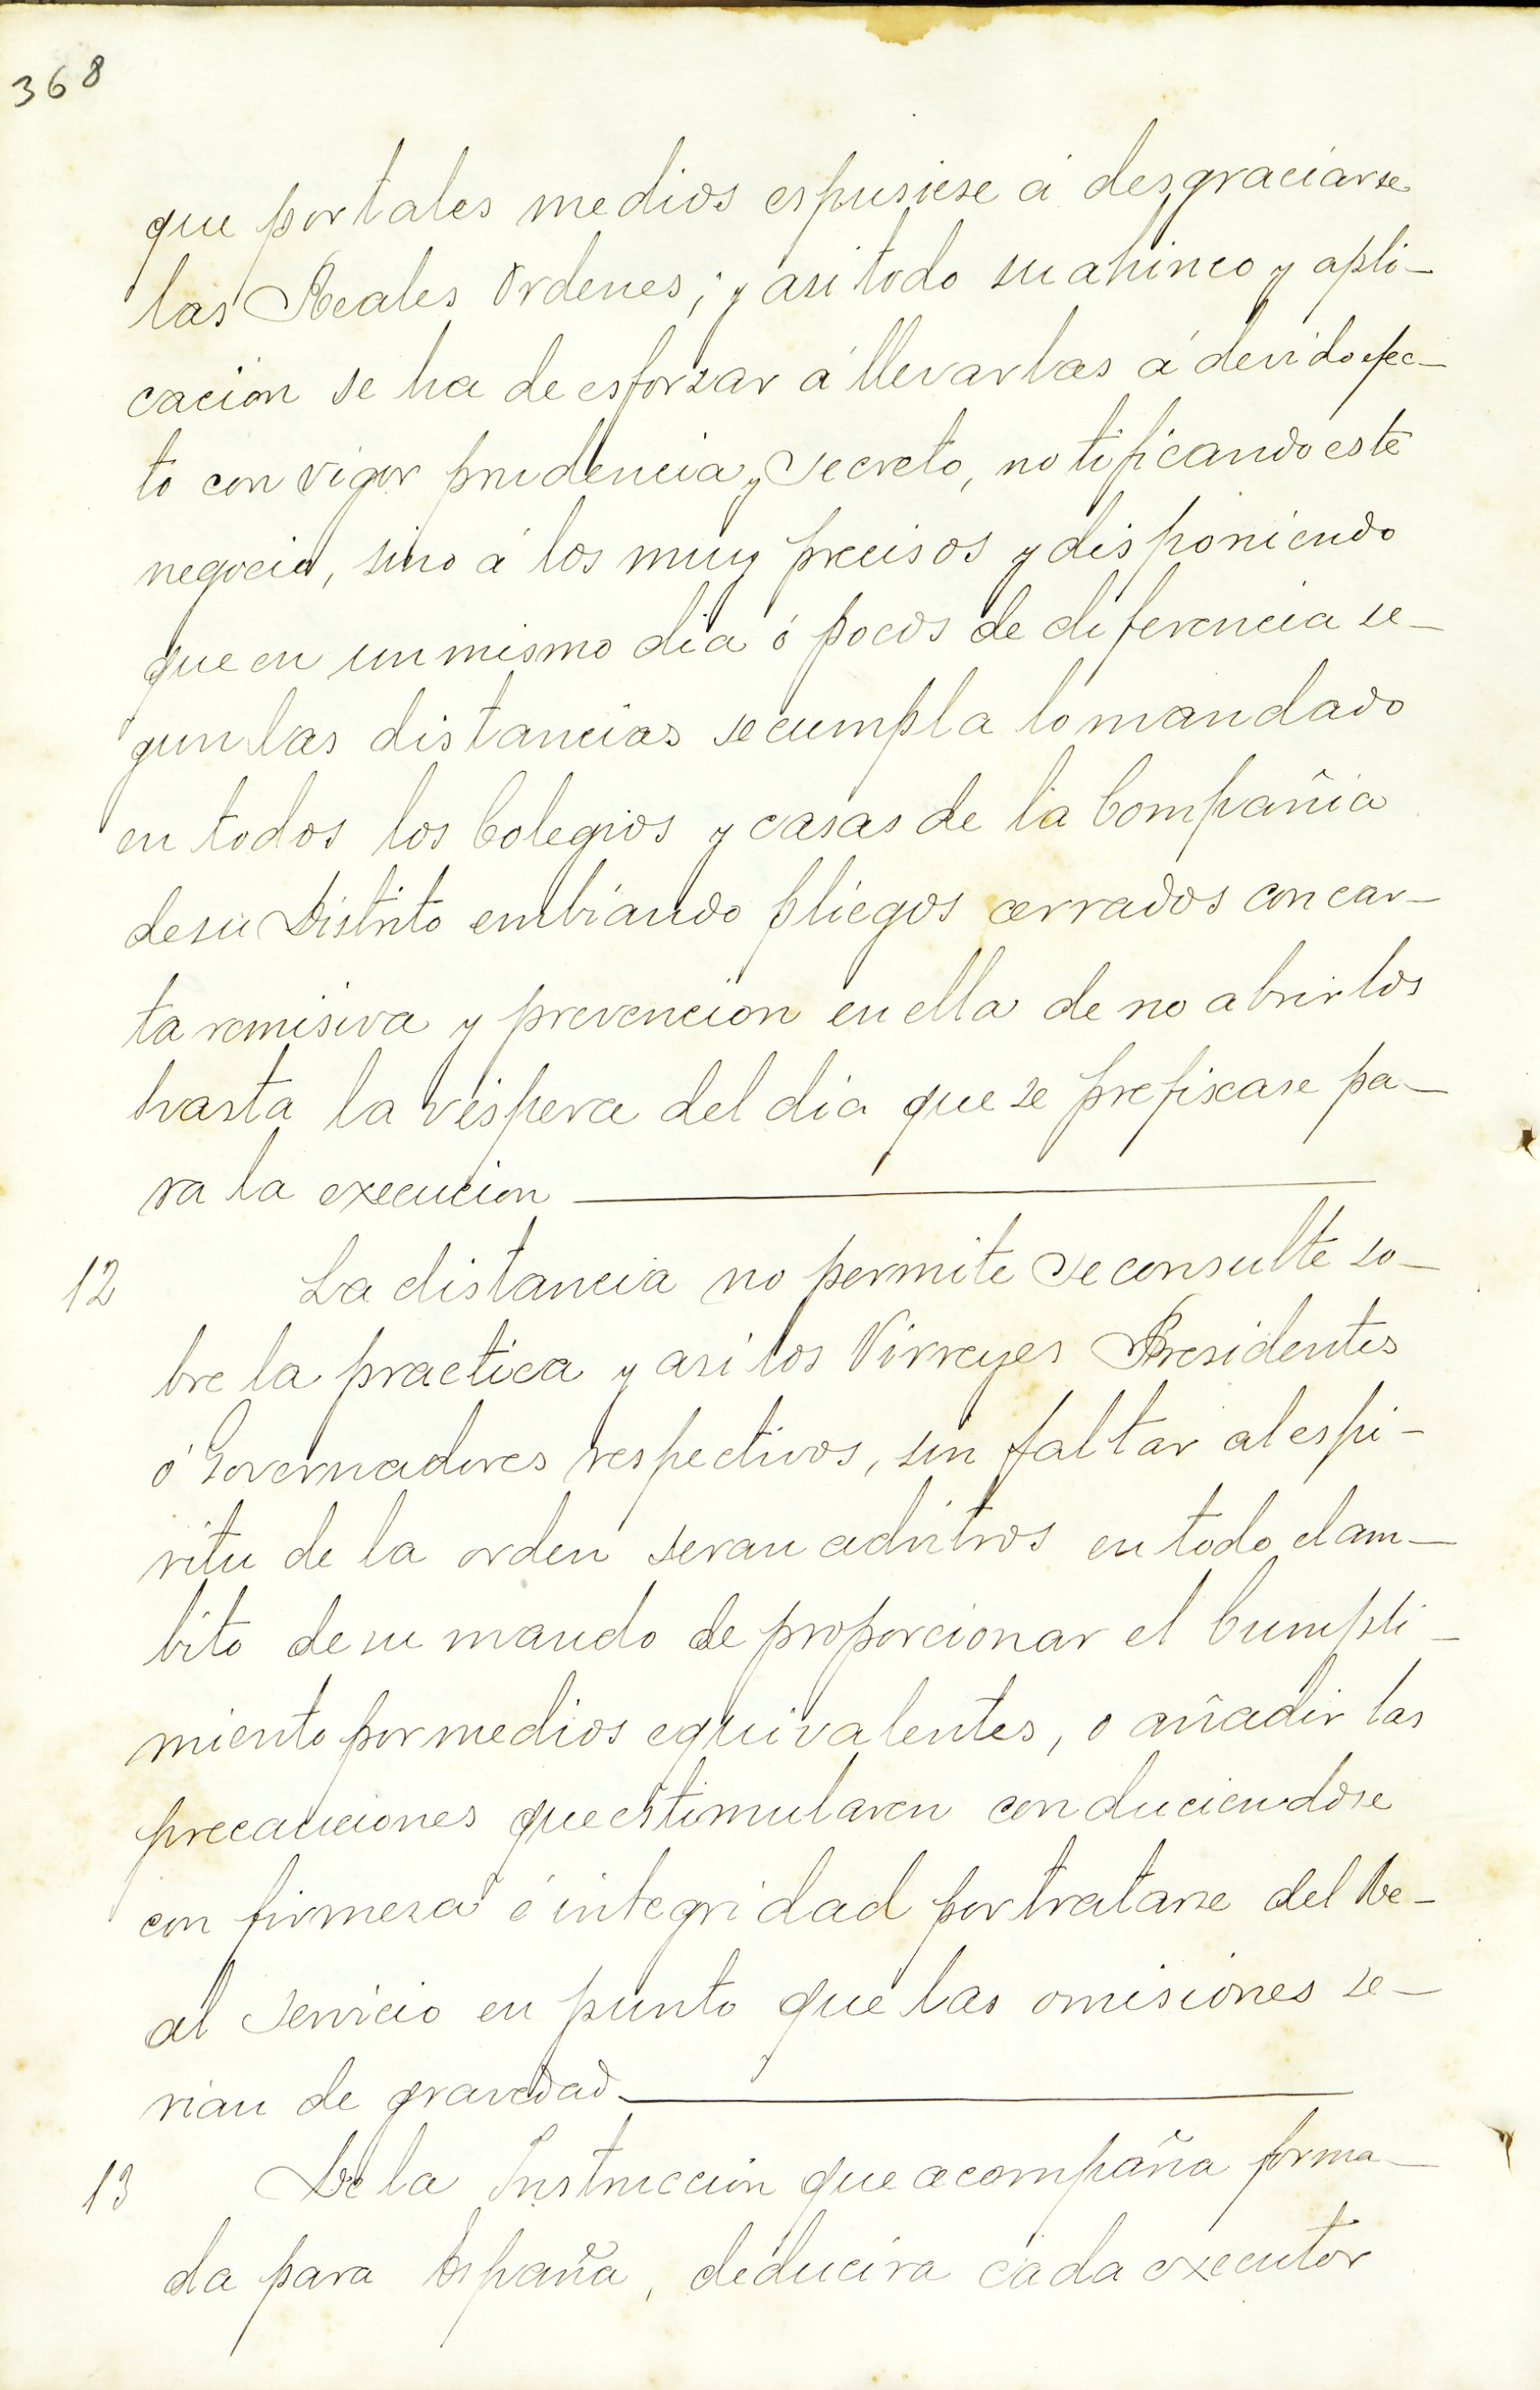 368
que por tales medios espusiese á desgraciarse
las Reales Ordenes; y asi todo su ahinco y apli-
cacion se ha de esforzar á llevarlas á devido efec-
to con vigor prudencia y secreto, notificando este
negocio, sino á los muy precisos y disponiendo
que en un mismo dia ó pocos de diferencia se-
gun las distancias se cumpla lo mandado
en todos los Colegios y casas de la Compañia
de su Distrito embiando pliegos cerrados con car-
ta remisiva y prevencion en ella de no abrirlos
hasta la vispera del dia que se prefixase pa-
ra la execucion
12 La distancia no permite se consulte so-
bre la practica y asi los Virreyes Presidentes
ó Governadores respectivos, sin faltar al espi-
ritu de la orden seran advitros en todo el am-
bito de su mando de proporcionar el Cumpli-
miento por medios equivalentes, o añadir las
precauciones que estimularen conduciendose
con firmeza é integridad por tratarse del Re-
al servicio en punto que las omisiones se-
rian de gravedad
13 De la Instruccion que acompaña forma-
da para España, deducira cada executor